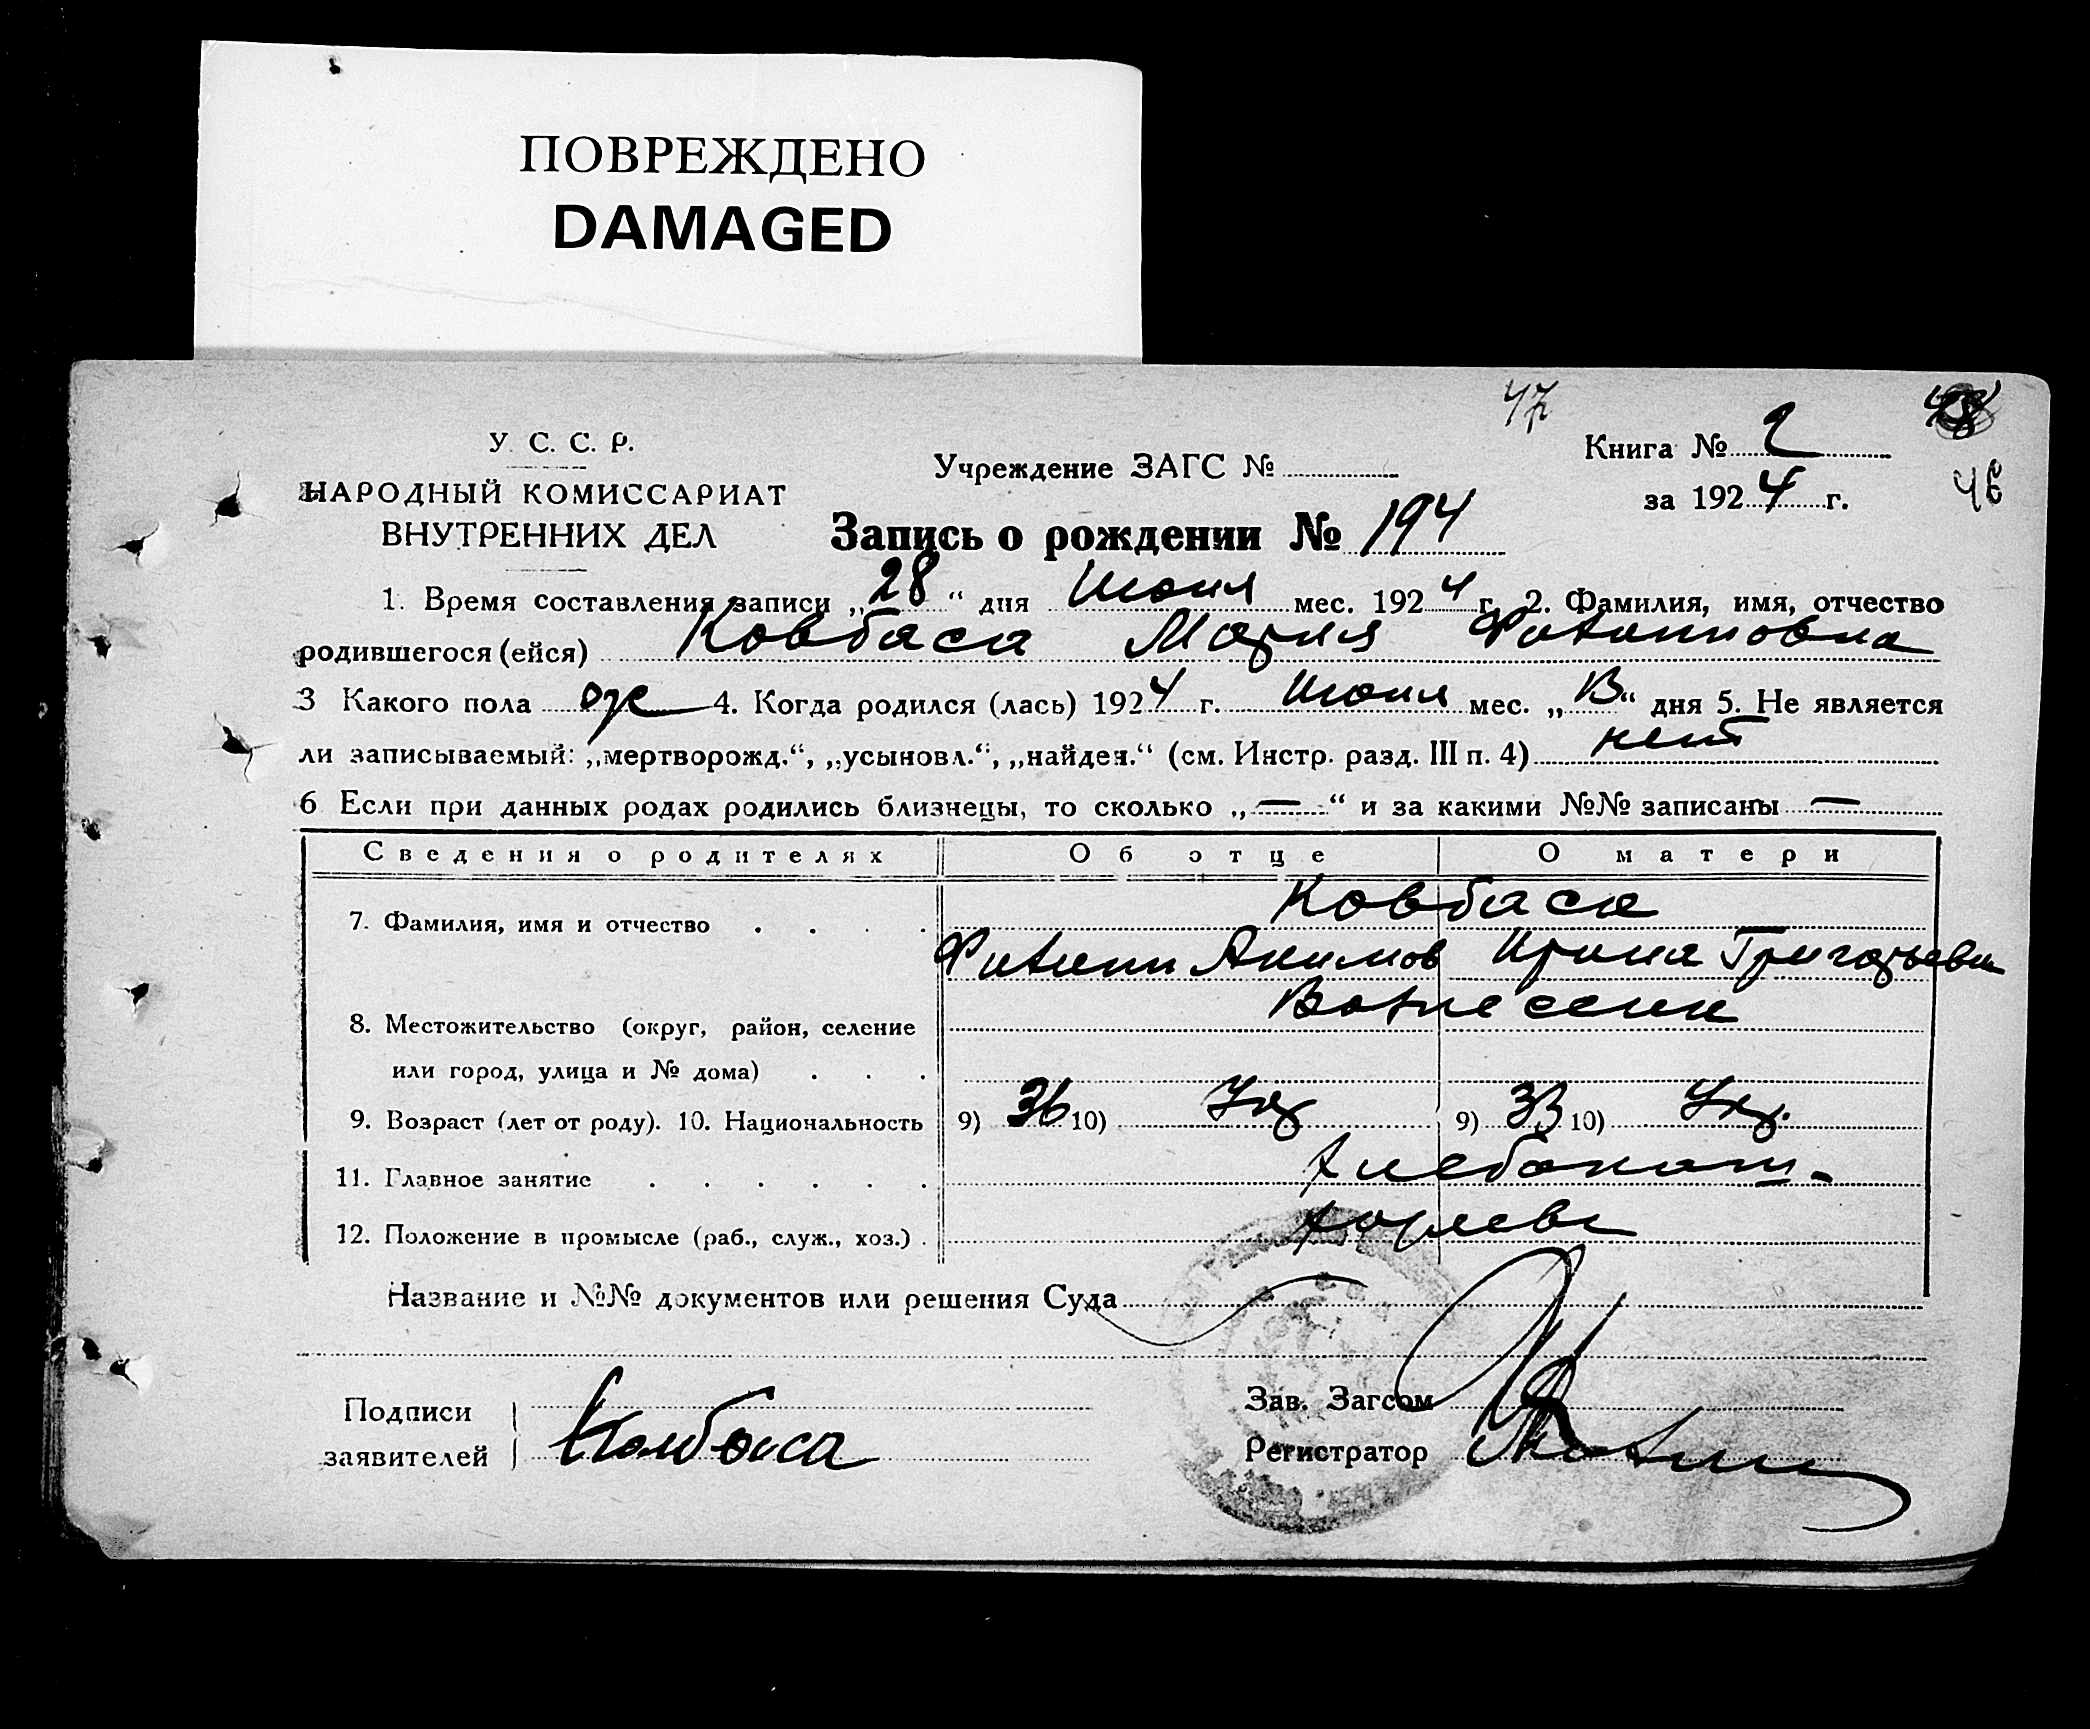 ПОВРЕЖДЕНО
DAMAGED
47
У. С. С. Р.
НАРОДНЫЙ КОМИССАРИАТ
ВНУТРЕННИХ ДЕЛ
Учреждение ЗАГС №
Книга № 2
за 1924 г.
46
Запись о рождении № 194
1. Время составления записи „28“ дня Июня мес. 1924 г. 2. Фамилия, имя, отчество
родившегося (ейся) Ковбаса Мария Филипповна
3 Какого пола ж 4. Когда родился (лась) 1924 г. Июня мес. „13“ дня 5. Не является
ли записываемый: „мертворожд.“, „усыновл.“, „найден.“ (см. Инстр. разд. III п. 4) нет
6 Если при данных родах родились близнецы, то сколько „—“ и за какими №№ записаны —
Сведения о родителях Об отце О матери
7. Фамилия, имя и отчество Ковбаса
Филипп Акимов Ирина Григорьевн
8. Местожительство (округ, район, селение Вознесенк
или город, улица и № дома)
9. Возраст (лет от роду). 10. Национальность 9) 36 10) Укр 9) 33 10) Укр.
11. Главное занятие хлебопаш-
12. Положение в промысле (раб., служ., хоз.)
Название и №№ документов или решения Суда
Подписи
заявителей Ковбаса
Зав. Загсом
Регистратор